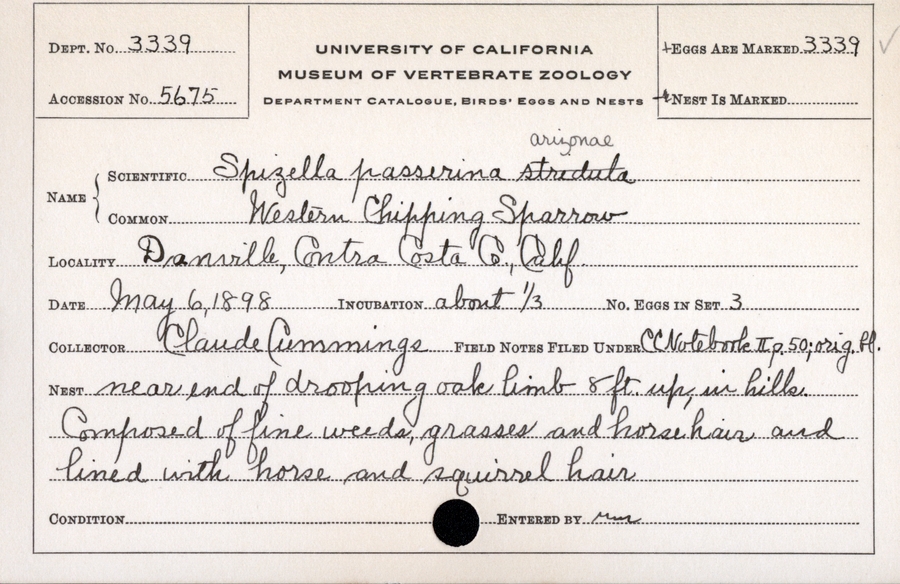 DEPT. No. 3339
UNIVERSITY OF CALIFORNIA
MUSEUM OF VERTEBRATE ZOOLOGY
DEPARTMENT CATALOGUE, BIRDS' EGGS AND NESTS
EGGS ARE MARKED 3339 ✓
ACCESSION No. 5675
NEST IS MARKED
arizonae
NAME
SCIENTIFIC Spizella passerina stridula
COMMON Western Chipping Sparrow
LOCALITY Danville, Contra Costa Co., Calif
DATE May 6, 1898 INCUBATION about 1/3 NO. EGGS IN SET 3
COLLECTOR Claude Cummings FIELD NOTES FILED UNDER CC Notebook II p. 50; orig. bl.
NEST near end of drooping oak limb 8 ft. up, in hills.
Composed of fine weeds, grasses and horsehair and
lined with horse and squirrel hair
CONDITION ENTERED BY